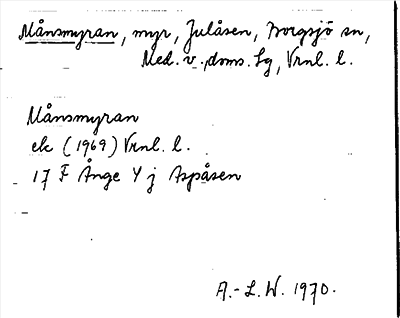 Månsmyran, myr, Julåsen, Borgsjö sn,
Med. v. doms. Lg, Vrnl. l.
Månsmyran
ek (1969) Vrnl. l.
17 F Ånge Y j Aspåsen
A.-L.W. 1970.